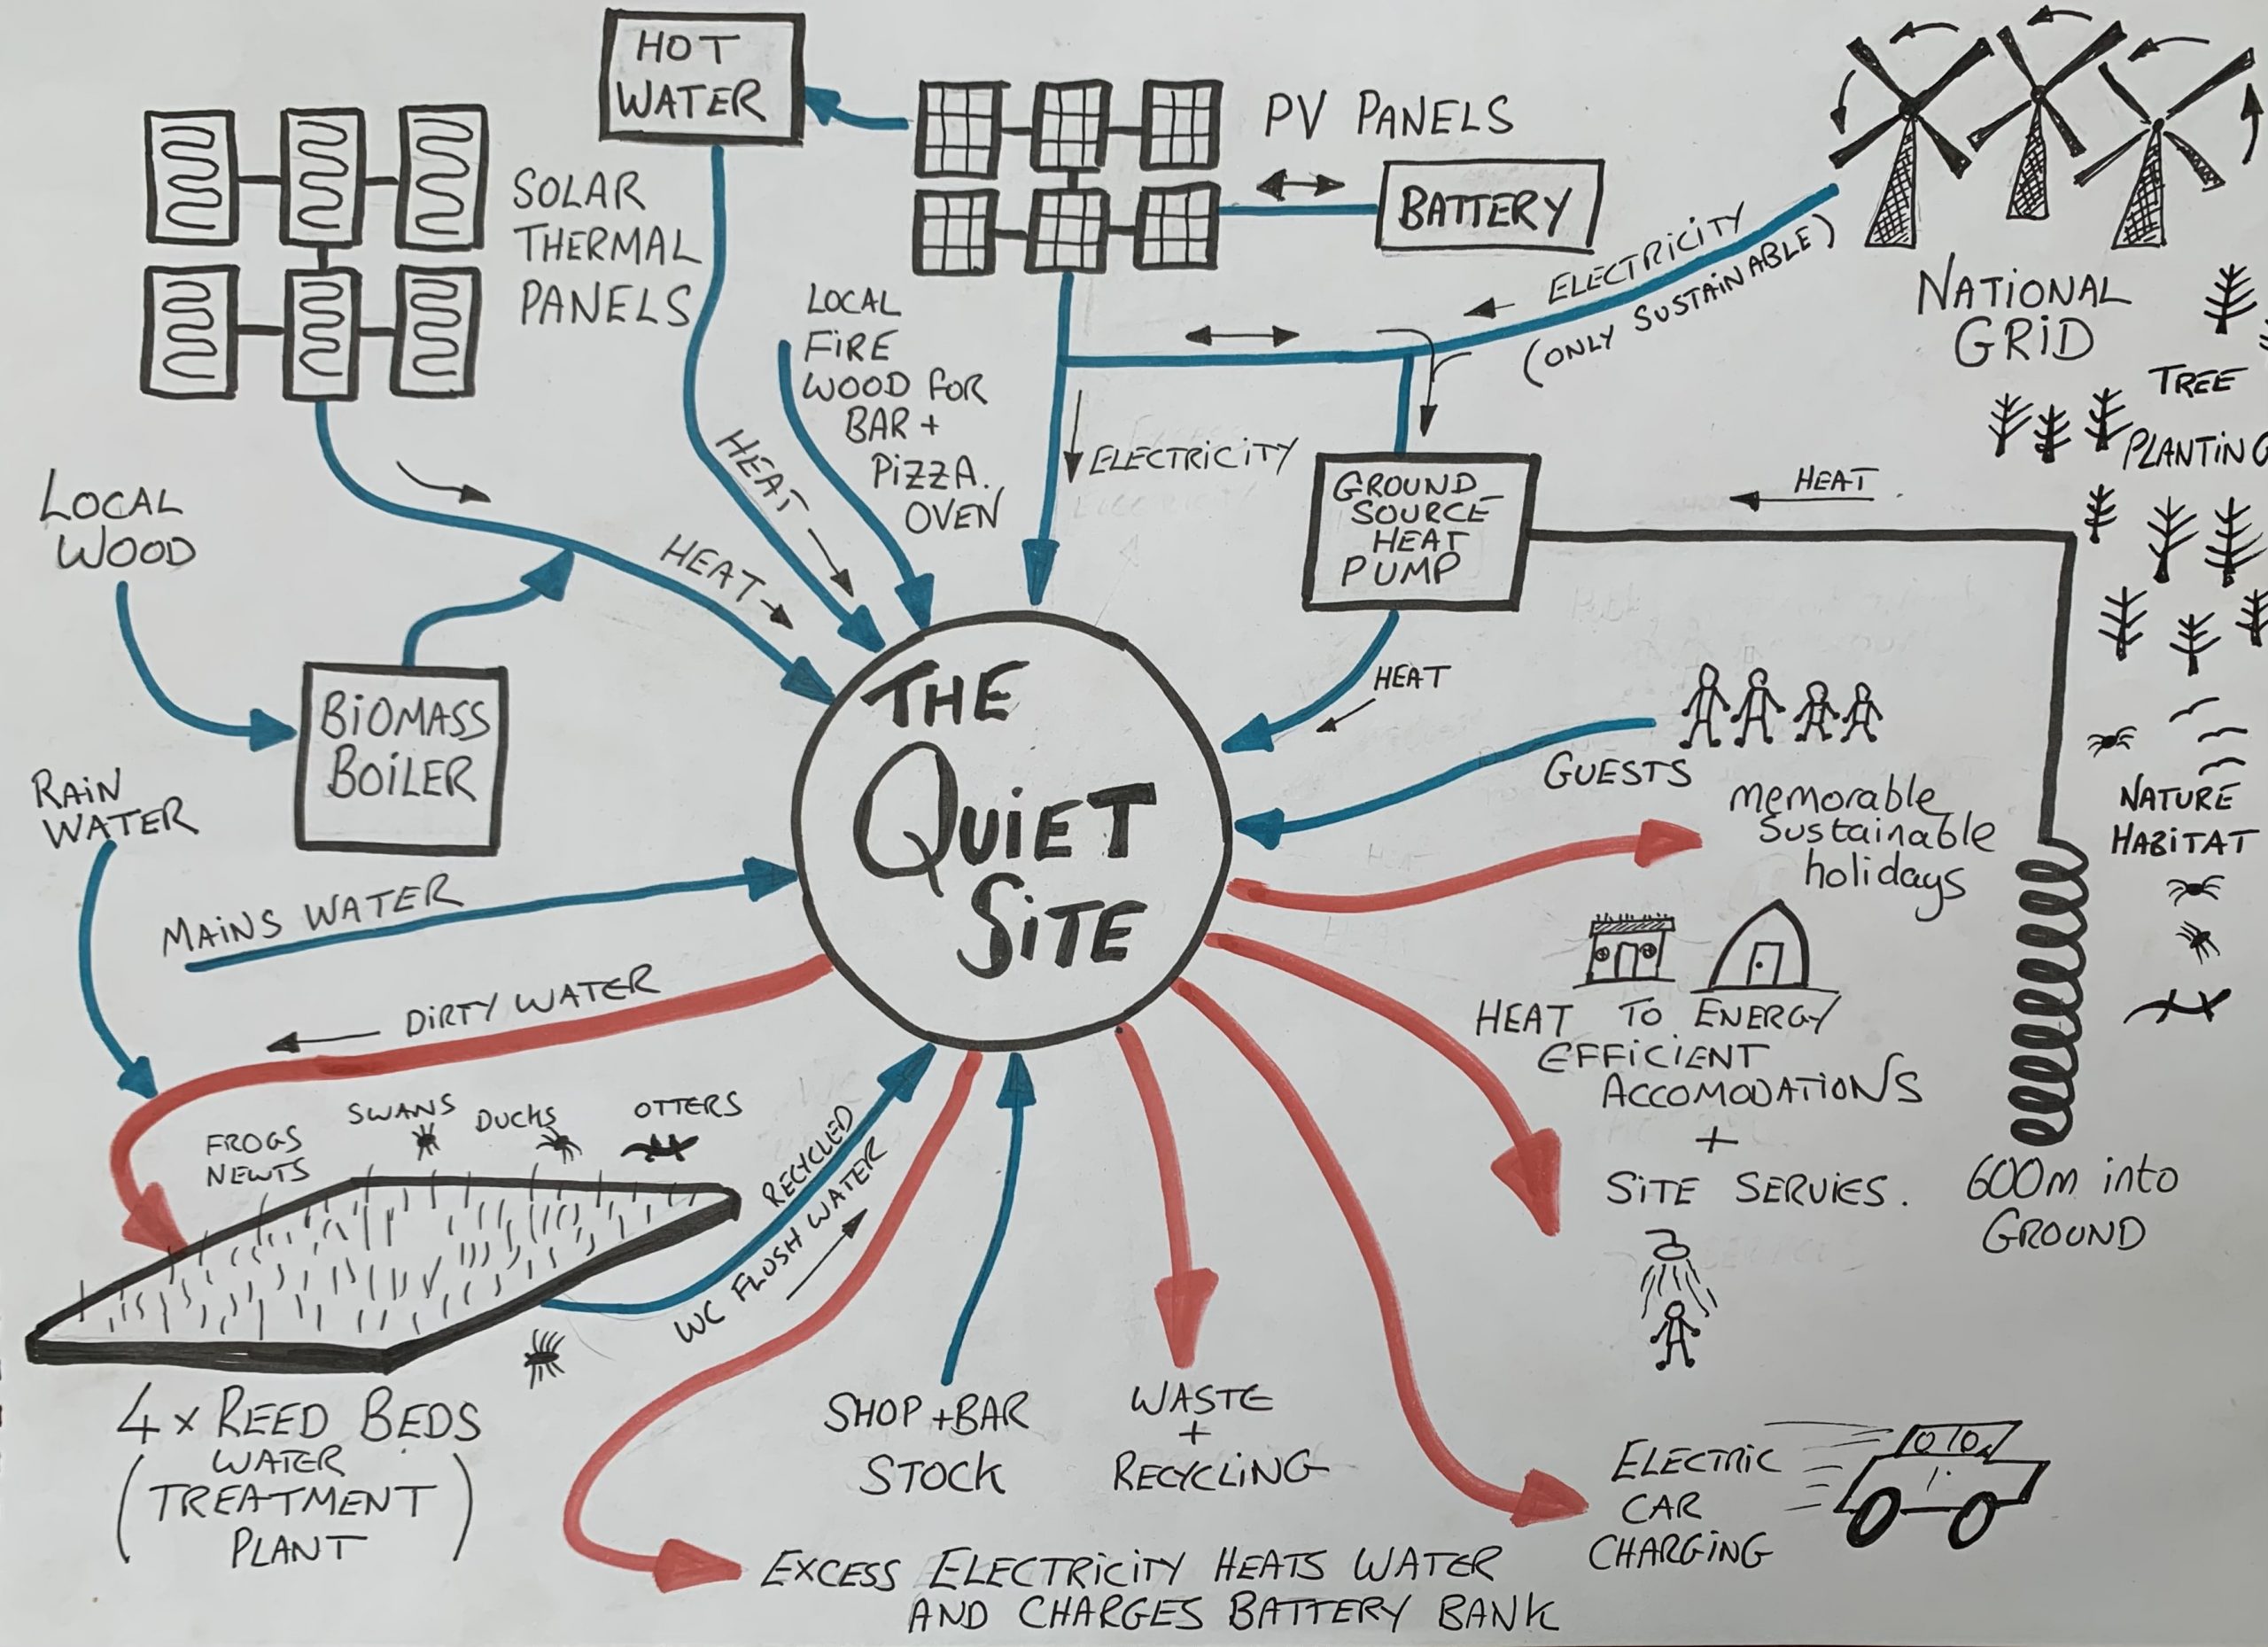 HOT
WATER
PV PANELS
BATTERY
SOLAR
THERMAL
PANELS
ELECTRICITY
(ONLY SUSTAINABLE)
NATIONAL
GRID
LOCAL
FIRE
WOOD FOR
BAR +
PIZZA.
OVEN
HEAT
ELECTRICITY
TREE
PLANTING
LOCAL
WOOD
HEAT
GROUND
SOURCE
HEAT
PUMP
HEAT
BIOMASS
BOILER
HEAT
RAIN
WATER
THE
QUIET
SITE
GUESTS
memorable
sustainable
holidays
NATURE
HABITAT
MAINS WATER
DIRTY WATER
HEAT TO ENERGY
EFFICIENT
ACCOMODATIONS
+
SITE SERVIES.
600m into
GROUND
FROGS
NEWTS
SWANS
DUCKS
OTTERS
RECYCLED
WC FLUSH WATER
4 x REED BEDS
(WATER
TREATMENT
PLANT)
SHOP + BAR
STOCK
WASTE
+
RECYCLING
ELECTRIC
CAR
CHARGING
EXCESS ELECTRICITY HEATS WATER
AND CHARGES BATTERY BANK